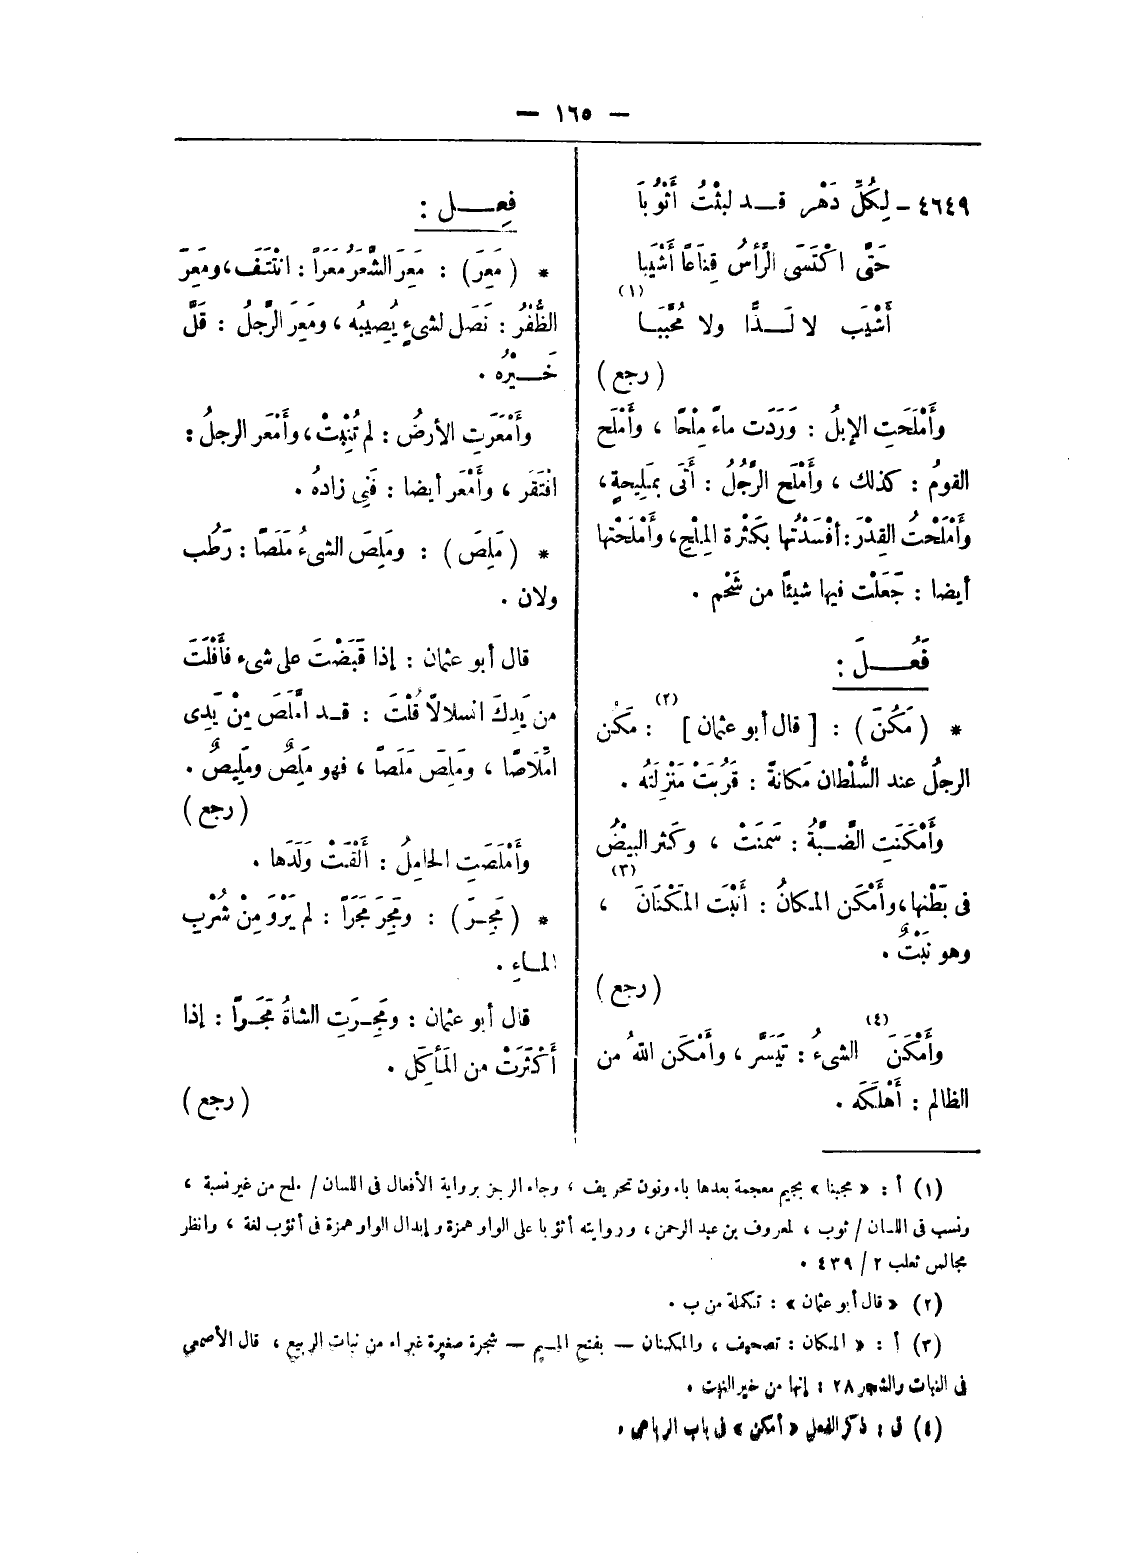 — ١٦٥ —
٤٦٤٩ – لِكُلِّ دَهْر قد لبثْتُ أَثْوُبَا
حَتَّى اكْتَسَى الرَّأسُ قِنَاعًا أَشْيَبا
أَشْيَب لا لَذًّا ولا مُحَبَّبَا (١)
(رجع)
وأَمْلَحَتِ الإبلُ : وَرَدَت ماءً مِلْحًا ، وأَمْلَح
القومُ : كذلك ، وأَمْلَح الرَّجُلُ : أَتَى بمَلِيحةٍ ،
وأَمْلَحْتُ القِدْرَ : أفْسَدْتُها بكَثْرة المِلْحِ ، وأَمْلَحْتها
أيضا : جَعَلْت فيها شيئًا من شَحْم .
فَعُلَ :
* (مَكُنَ) : [ قال أبو عثمان ] (٢) : مَكُن
الرجلُ عند السُّلْطان مَكانةً : قَرُبَتْ مَنْزِلَتُه .
وأَمْكَنَتِ الضَّبَّةُ : سَمنَتْ ، وكثر البيْضُ
فى بَطْنها ، وأَمْكَن المكانُ : أَنْبَت المَكْنَانَ (٣) ،
وهو نَبْتٌ .
(رجع)
وأَمْكَنَ (٤) الشىءُ : تَيَسَّر ، وأَمْكَن اللهُ من
الظالم : أَهْلَكَه .
فَعِل :
* (مَعِرَ) : مَعِرَ الشَّعَرُ مَعَرًا : انْتَتَف ، ومَعِرَ
الظُّفُرُ : نَصَل لشىءٍ يُصِيبُه ، ومَعِرَ الرَّجلُ : قَلَّ
خَيْرُه .
وأَمْعَرَتِ الأرضُ : لم تُنْبِتْ ، وأَمْعَر الرجلُ :
افْتَقَر ، وأَمْعَر أيضا : فَنِى زادُهُ .
* (مَلِصَ) : ومَلِصَ الشىءُ مَلَصًا : رَطُب
ولان .
قال أبو عثمان : إذا قَبَضْتَ على شىء فأَفْلَتَ
من يَدِكَ انسلالًا قُلْتَ : قد امَّلَصَ مِنْ يَدِى
امِّلَاصًا ، ومَلِصَ مَلَصًا ، فهو مَلِصٌ ومَلِيصٌ .
(رجع)
وأَمْلَصَتِ الحاملُ : أَلْقَتْ وَلَدَها .
* (مَجِرَ) : ومَجِرَ مَجَرًا : لم يَرْوَ مِنْ شُرْبِ
الماءِ .
قال أبو عثمان : ومَجِرَتِ الشاةُ مَجَرًا : إذا
أَكْثَرَتْ من المَأْكَل .
(رجع)
(١) أ : « مجبنا » بجيم معجمة بعدها باء ونون تحريف ، وجاء الرجز برواية الأفعال فى اللسان / ملح من غير نسبة ،
ونسب فى اللسان / ثوب ، لمعروف بن عبد الرحمن ، وروايته أثؤبا على الواو همزة وإبدال الواو همزة فى أثؤب لغة ، وانظر
مجالس ثعلب ٢ / ٤٣٩ .
(٢) « قال أبو عثمان » : تكملة من ب .
(٣) أ : « المكان : تصحيف ، والمكنان — بفتح الميم — شجرة صغيرة غبراء من نبات الربيع ، قال الأصمعى
فى النبات والشجر ٢٨ : إنها من خير النبت .
(٤) ق : ذكر الفعل « أمكن » فى باب الرباعى .